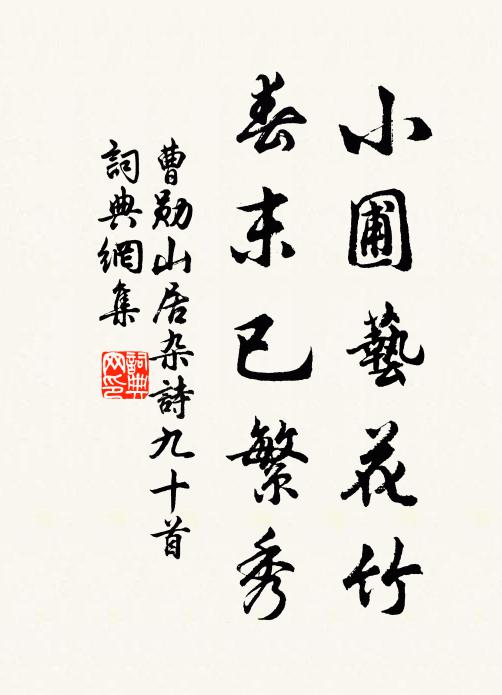 小圃藝花竹
春末已繁秀
曹勛山居杂詩九十首
詞典網集
詞典
网印